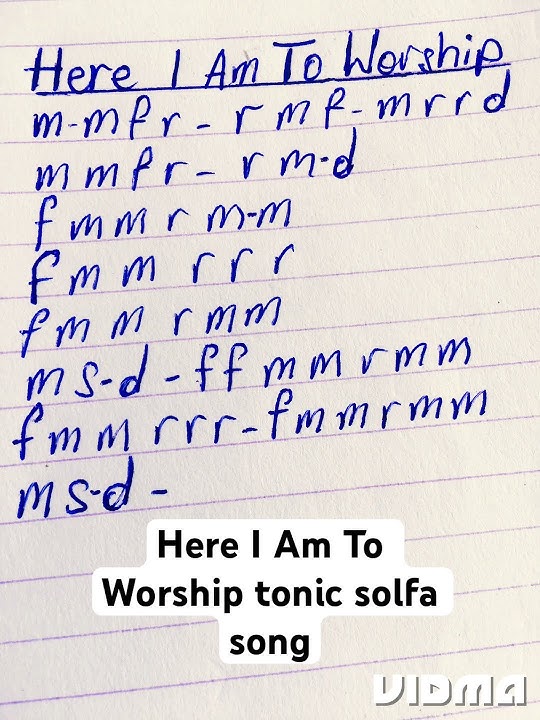 Here I Am To Worship
m-m f r - r m f - m r r d
m m f r - r m-d
f m m r m-m
f m m r r r
f m m r m m
m s-d - f f m m r m m
f m m r r r - f m m r m m
m s-d -
Here I Am To
Worship tonic solfa
song
VIDMA